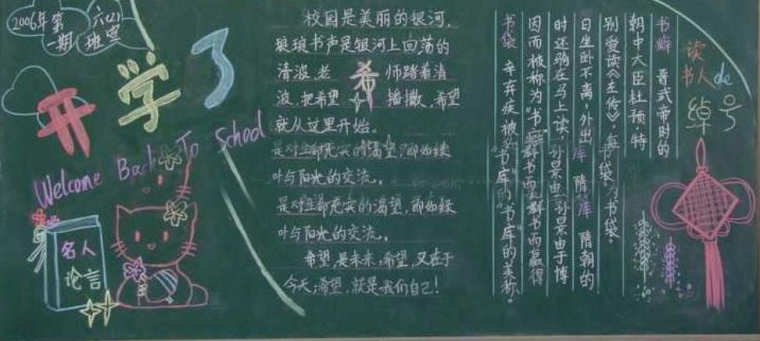 2006年第一期
六(2)班宣
开学了
Welcome Back To School
名人
论言
校园是美丽的银河，
琅琅书声是银河上回荡的
清波，老师踏着清
波，把希望播撒，希望
就从这里开始。
希
是对生命充实的渴望，那如绿
叶与阳光的交流。
是对生命充实的渴望，那如绿
叶与阳光的交流。
希望，是未来，希望，又在于
今天，希望，就是我们自己！
读书人de绰号
书癖 晋武帝时的
朝中大臣杜预，特
别爱读《左传》，
书袋。
日坐卧不离，外出
库 隋朝的
时还骑在马上读，
孙景由于博
因而被称为"书
群书而赢得
书袋 辛弃疾被
"书库"的美称。